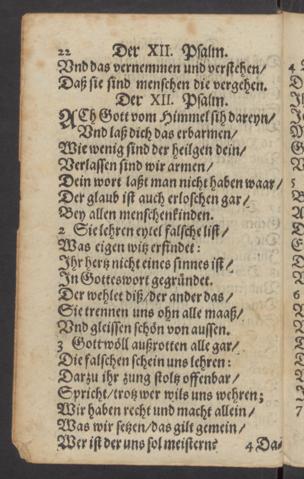 22 Der XII. Psalm.
Vnd das vernemmen und verstehen/
Daß sie sind menschen die vergehen.
Der XII. Psalm.
ACh Gott vom Himmel sih dareyn/
Vnd laß dich das erbarmen/
Wie wenig sind der heilgen dein/
Verlassen sind wir armen/
Dein wort laßt man nicht haben waar/
Der glaub ist auch erloschen gar/
Bey allen menschenkinden.
2 Sie lehren eytel falsche list/
Was eigen witz erfindet:
Ihr hertz nicht eines sinnes ist/
In Gotteswort gegründet.
Der wehlet diß/ der ander das/
Sie trennen uns ohn alle maaß/
Vnd gleissen schön von aussen.
3 Gott wöll außrotten alle gar/
Die falschen schein uns lehren:
Darzu ihr zung stoltz offenbar/
Spricht/ trotz wer wils uns wehren;
Wir haben recht und macht allein/
Was wir setzen/ das gilt gemein/
Wer ist der uns sol meistern?
4 Da-